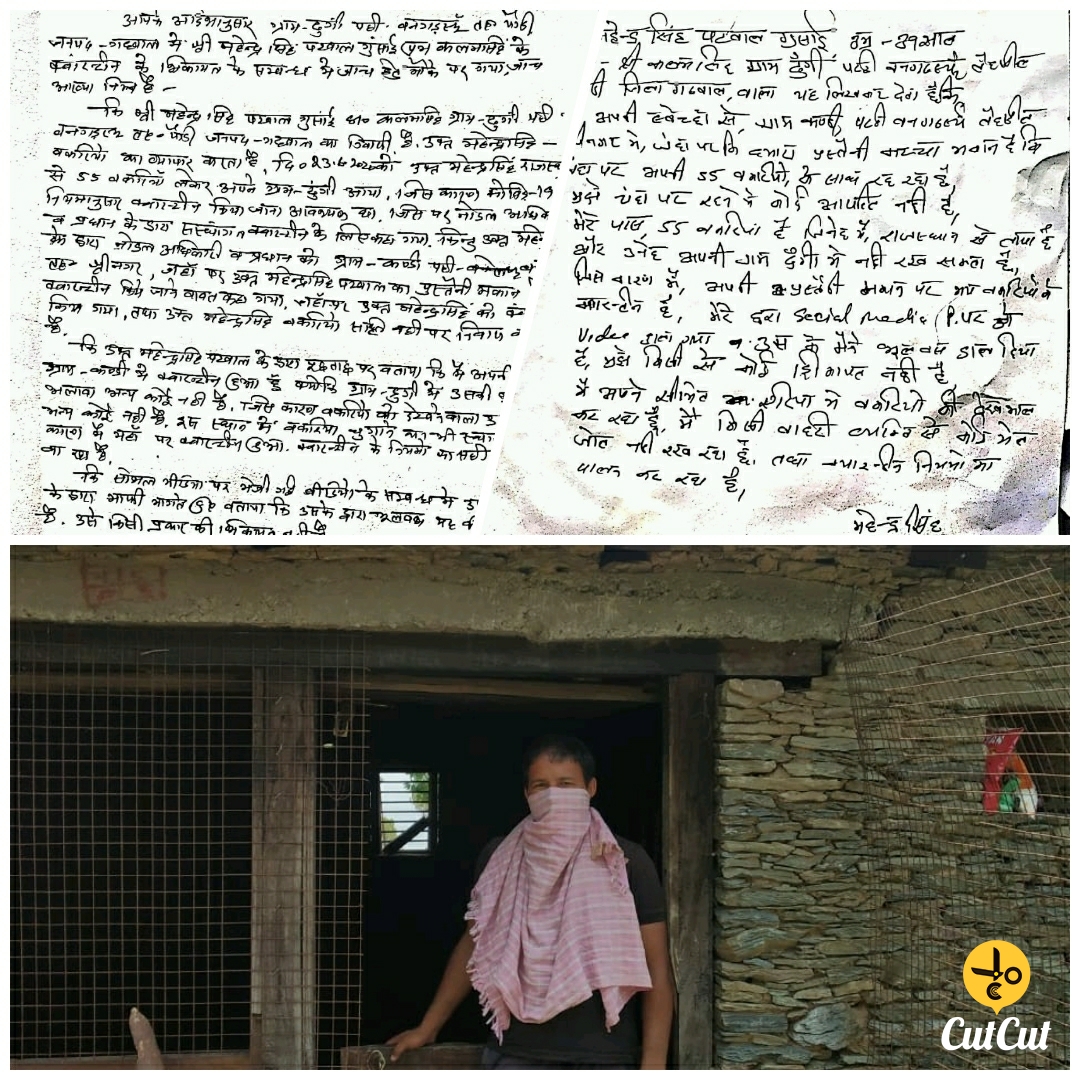 आपके आदेशानुसार ग्राम-दुगी पट्टी बनगढस्यूँ तह० पौड़ी
जनपद-गढवाल में श्री महेन्द्र सिंह पटवाल गुसाई पुत्र कलमसिंह के
क्वारन्टीन के शिकायत के सम्बन्ध में जांच हेतु मौके पर गया, जांच
आख्या निम्न है-
कि श्री महेन्द्र सिंह पटवाल गुसाई S/o कलमसिंह ग्राम-दुगी पट्टी-
बनगढस्यूँ तह०-पौड़ी जनपद-गढवाल का निवासी है. उक्त महेन्द्रसिंह-
बकरियों का व्यापार करता है, दि० 23.6.2020 को उक्त महेन्द्रसिंह
से 55 बकरियाँ लेकर अपने ग्राम-दुंगी आया, जिस कारण कोविड-19
नियमानुसार क्वारन्टीन किया जाना आवश्यक था, जिस पर नोडल
व प्रधान के द्वारा संस्थागत क्वारन्टीन के लिए कहा गया. किन्तु उक्त
के द्वारा नोडल अधिकारी व प्रधान को ग्राम-कण्डी पट्टी-
तह० श्रीनगर, जहां पर उक्त महेन्द्रसिंह पटवाल का पुस्तैनी मकान
क्वारन्टीन किये जाने बावत कहा गया, जहाँ पर उक्त महेन्द्रसिंह को
किया गया, तथा उक्त महेन्द्रसिंह बकरियों सहित वही पर निवास
है.
कि उक्त महेन्द्रसिंह पटवाल के द्वारा पूछताछ पर बताया कि मैं अपने
ग्राम-कण्डी में क्वारन्टीन हुआ हूँ क्योंकि ग्राम-दुगी में उसकी
अलावा अन्य कोई नहीं है, जिस कारण बकरियों को देखने वाला
अन्य कोई नहीं है. इस स्थान में बकरियां चुगाने का भी
कारण मैं यहाँ पर क्वारन्टीन हुआ. क्वारन्टीन के नियमों का सही
जा रहा है.
कि सोशल मीडिया पर भेजी गई वीडियो के सम्बन्ध में
के द्वारा माफी मांगते हुए बताया कि उसके द्वारा भूलवश यह
है. उसे किसी प्रकार की शिकायत नहीं है
महेन्द्र सिंह पटवाल गुसाई पुत्र
श्री कलम सिंह ग्राम दुँगी पट्टी बनगढस्यूँ तहसील
जिला गढवाल, वाला यह लिखकर देता हूँ कि,
अपनी स्वेच्छा से, ग्राम कण्डी पट्टी बनगढस्यूँ तहसील
में, यहां पर कि हमारा पुस्तैनी मकान है कि
यहां पर अपनी 55 बकरियों, के साथ रह रहा हूँ,
मुझे यहां पर रहने में कोई आपत्ति नहीं है,
मेरे पास, 55 बकरियां हैं जिन्हें मैं, राजस्थान से लाया हूँ
और उन्हें अपनी ग्राम दुँगी में नहीं रख सकता हूँ,
जिस कारण मैं, अपनी पुस्तैनी मकान पर
क्वारन्टीन हूँ, मेरे द्वारा Social media पर जो
Video डाला गया उस को मैंने भूल वश डाल दिया
है, मुझे किसी से कोई शिकायत नहीं है
मैं अपने सीमित में बकरियों की देखभाल
कर रहा हूँ, मैं किसी बाहरी व्यक्ति से कोई मेल
जोल नहीं रख रहा हूँ, तथा क्वारन्टीन नियमों का
पालन कर रहा हूँ,
महेन्द्र सिंह
CutCut